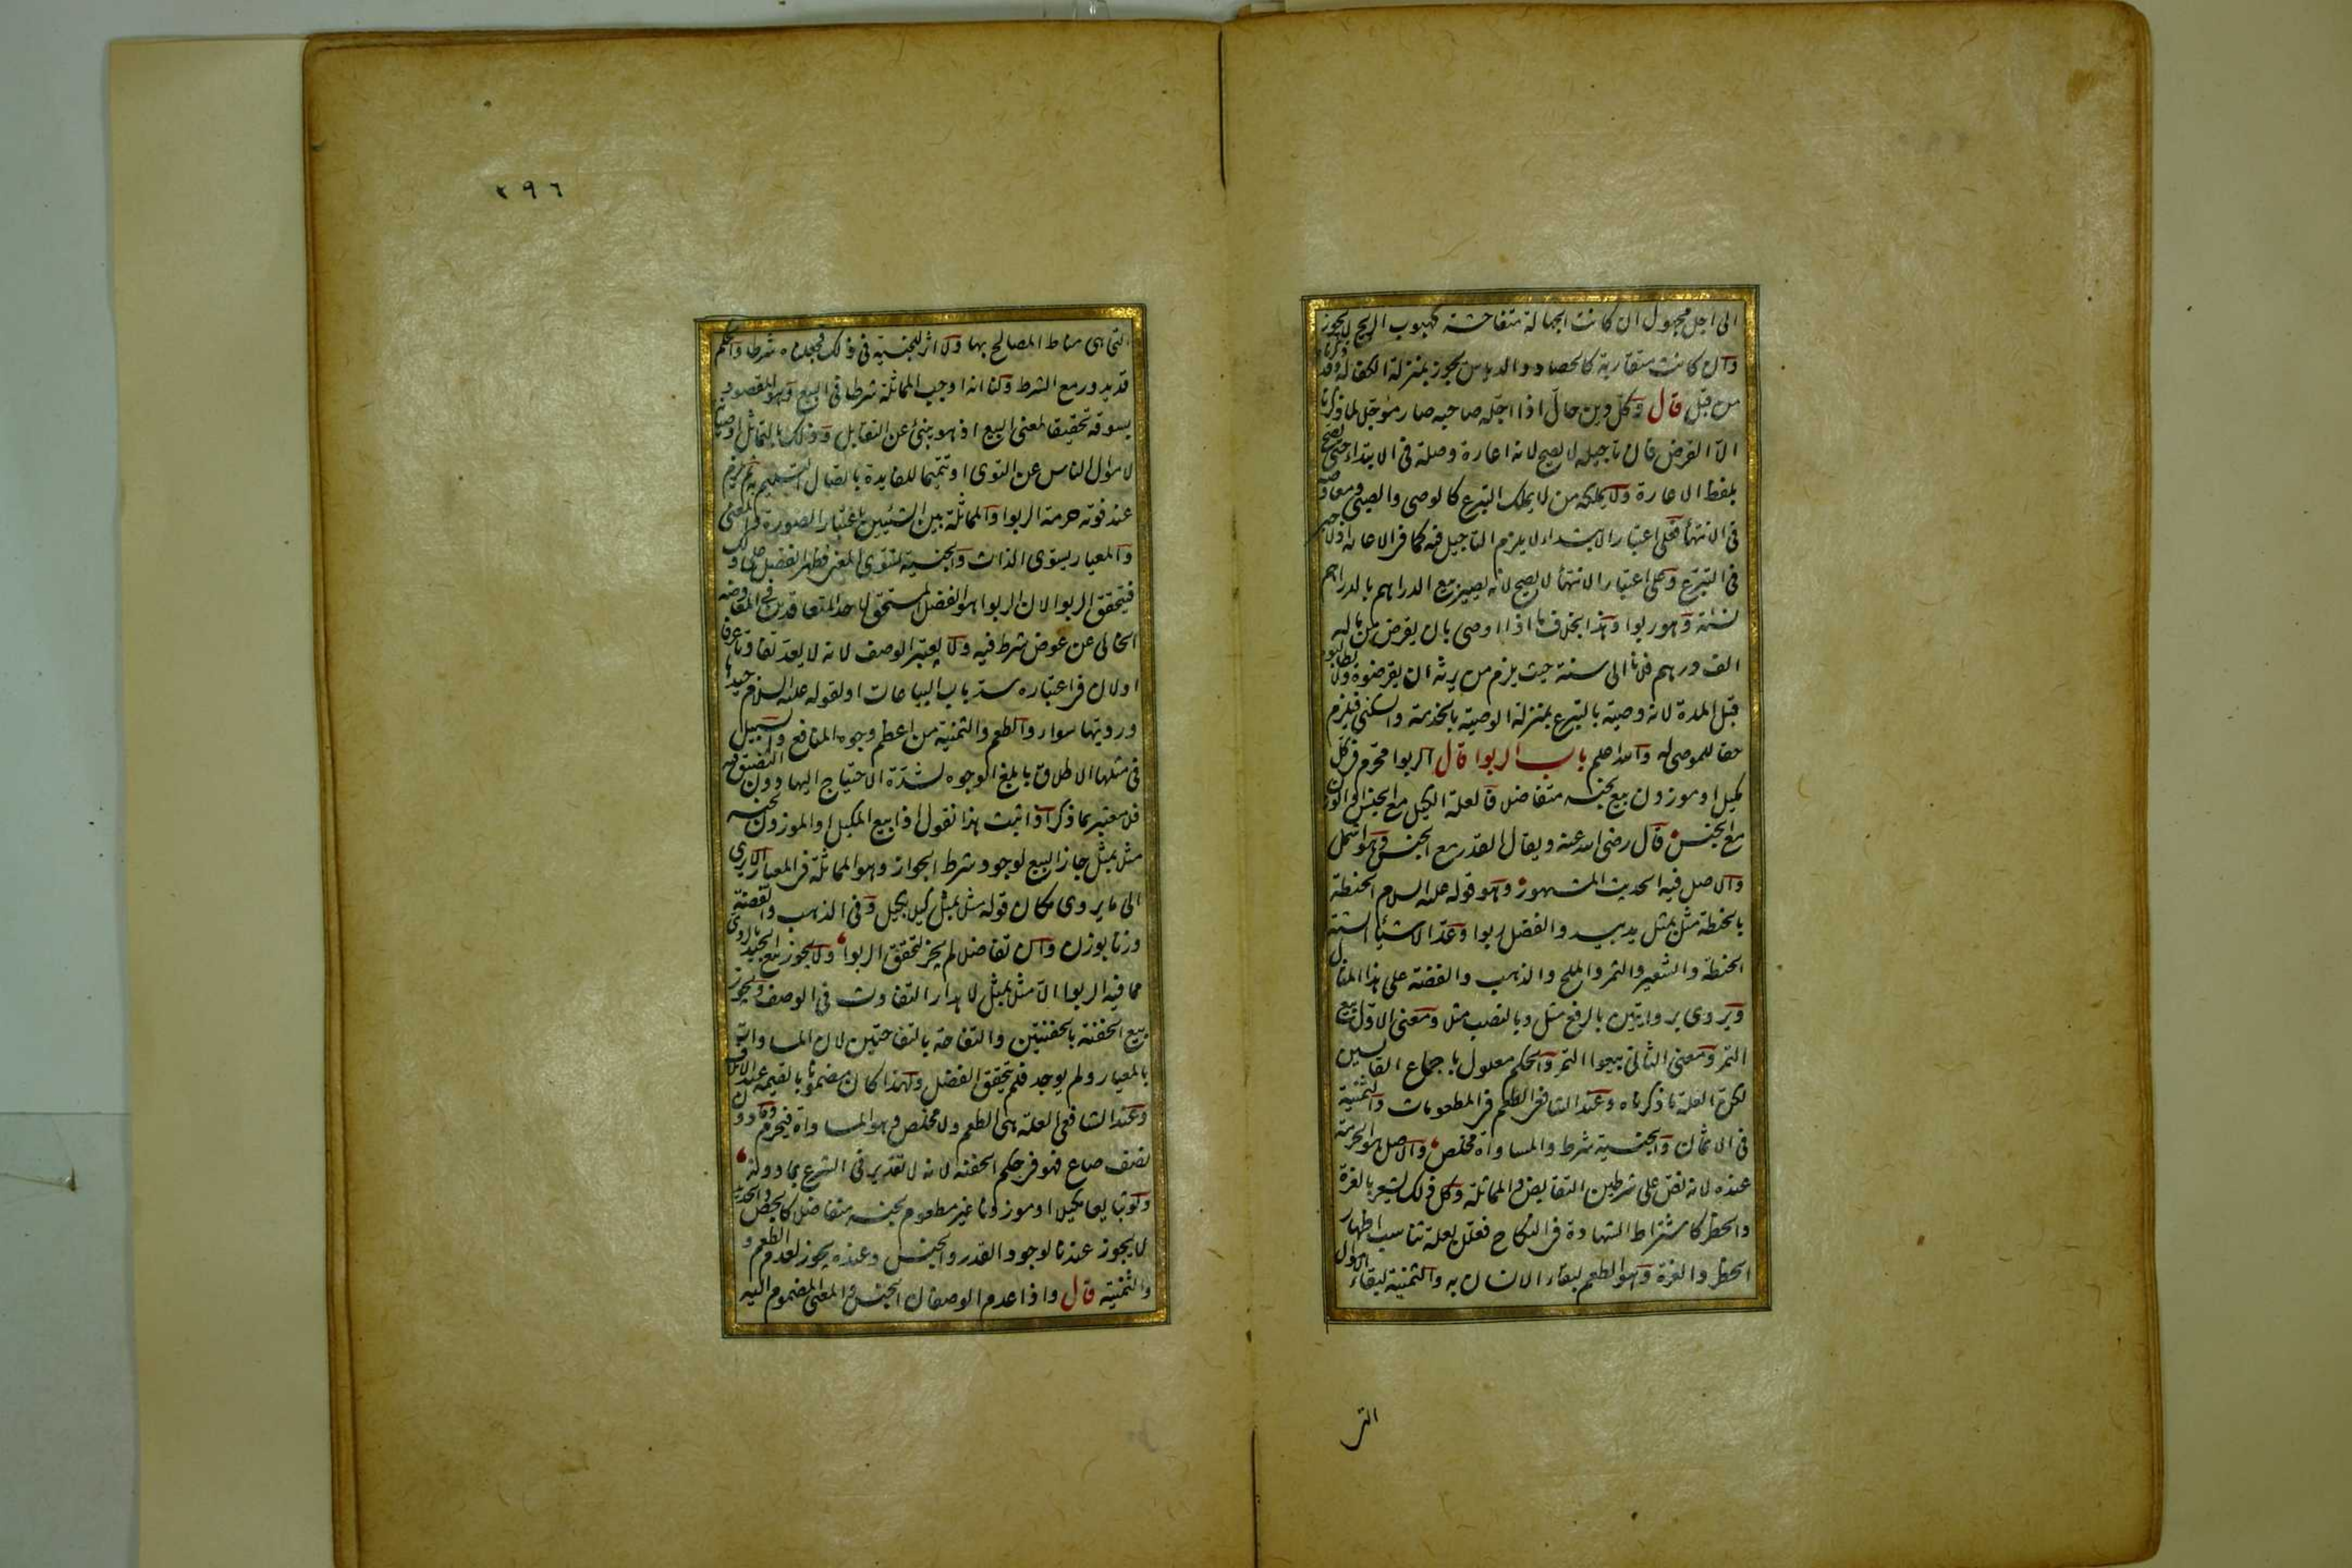 الى اجل مجهول ان كانت الجهالة متفاحشة كهبوب الريح لا يجوز
وان كانت متقاربة كالحصاد والدياس يجوز بمنزلة الكفالة وقد ذكرناه
من قبل قال وكل دين حال اذا اجله صاحبه صار مؤجلا لما ذكرنا
الا القرض فان تاجيله لا يصح لانه اعارة وصلة في الابتداء حتى يصح
بلفظ الاعارة ولا يملكه من لا يملك التبرع كالوصي والصبي ومعاوضة
في الانتهاء فعلى اعتبار الابتداء لا يلزم التاجيل فيه كما في الاعارة اذ لا جبر
في التبرع وعلى اعتبار الانتهاء لا يصح لانه يصير بيع الدراهم بالدراهم
نسئة وهو ربوا وهذا بخلاف ما اذا اوصى بان يقرض من ماله
الف درهم فلانا الى سنة حيث يلزم من يرثه ان يقرضوه ولا يطالبوه
قبل المدة لانه وصية بالتبرع بمنزلة الوصية بالخدمة والسكنى فيلزم
حقا للموصى له والله اعلم باب الربوا قال الربوا محرم في كل
مكيل او موزون بيع بجنسه متفاضلا فالعلة الكيل مع الجنس او الوزن
مع الجنس قال رضى الله عنه ويقال القدر مع الجنس وهو اشمل
والاصل فيه الحديث المشهور وهو قوله عليه السلام الحنطة
بالحنطة مثل بمثل يد بيد والفضل ربوا وعد الاشياء الستة
الحنطة والشعير والتمر والملح والذهب والفضة على هذا المثال
ويروى بروايتين بالرفع مثل وبالنصب مثلا ومعنى الاول بيع
التمر ومعنى الثاني بيعوا التمر والحكم معلول باجماع القايسين
لكن العلة ما ذكرناه وعند الشافعي الطعم في المطعومات والثمنية
في الاثمان والجنسية شرط والمساواة مخلص والاصل هو الحرمة
عنده لانه نص على شرطين التقابض والمماثلة وكل ذلك يشعر بالعزة
والخطر كاشتراط الشهادة في النكاح فعلل بعلة تناسب اظهار
الخطر والعزة وهو الطعم لبقاء الانسان به والثمنية لبقاء الاموال
التي
٢٩٦
التي هي مناط المصالح بها ولا اثر للجنسية في ذلك فجعلناه شرطا والحكم
قد يدور مع الشرط ولنا انه اوجب المماثلة شرطا في البيع وهو المقصود
بسوقه تحقيقا لمعنى البيع اذ هو ينبئ عن التقابل وذلك بالتماثل او صيانة
لاموال الناس عن التوى او تتميما للفايدة باتصال التسليم به ثم يلزم
عند فوته حرمة الربوا والمماثلة بين الشيئين باعتبار الصورة والمعنى
والمعيار يسوى الذات والجنسية تسوى المعنى فيظهر الفضل على ذلك
فيتحقق الربوا لان الربوا هو الفضل المستحق لاحد المتعاقدين في المعاوضة
الخالي عن عوض شرط فيه ولا يعتبر الوصف لانه لا يعد تفاوتا عرفا
او لان في اعتباره سد باب البياعات او لقوله عليه السلام جيدها
ورديها سواء والطعم والثمنية من اعظم وجوه المنافع والسبيل
في مثلها الاطلاق بابلغ الوجوه لشدة الاحتياج اليها دون التضييق فيه
فلا معتبر بما ذكره اذا ثبت هذا نقول اذا بيع المكيل او الموزون بجنسه
مثلا بمثل جاز البيع لوجود شرط الجواز وهو المماثلة في المعيار الا يرى
الى ما يروى مكان قوله مثلا بمثل كيلا بكيل وفي الذهب والفضة
وزنا بوزن وان تفاضلا لم يجز لتحقق الربوا ولا يجوز بيع الجيد بالردي
مما فيه الربوا الا مثلا بمثل لاهدار التفاوت في الوصف ويجوز
بيع الحفنة بالحفنتين والتفاحة بالتفاحتين لان المساواة
بالمعيار ولم يوجد فلم يتحقق الفضل ولهذا كان مضمونا بالقيمة عند الاتلاف
وعند الشافعي العلة هى الطعم ولا مخلص وهو المساواة فيحرم وما دون
نصف صاع فهو في حكم الحفنة لانه لا تقدير في الشرع بما دونه
ولو تبايعا مكيلا او موزونا غير مطعوم بجنسه متفاضلا كالجص والحديد
لا يجوز عندنا لوجود القدر والجنس وعنده يجوز لعدم الطعم و
والثمنية قال واذا عدم الوصفان الجنس والمعنى المضموم اليه